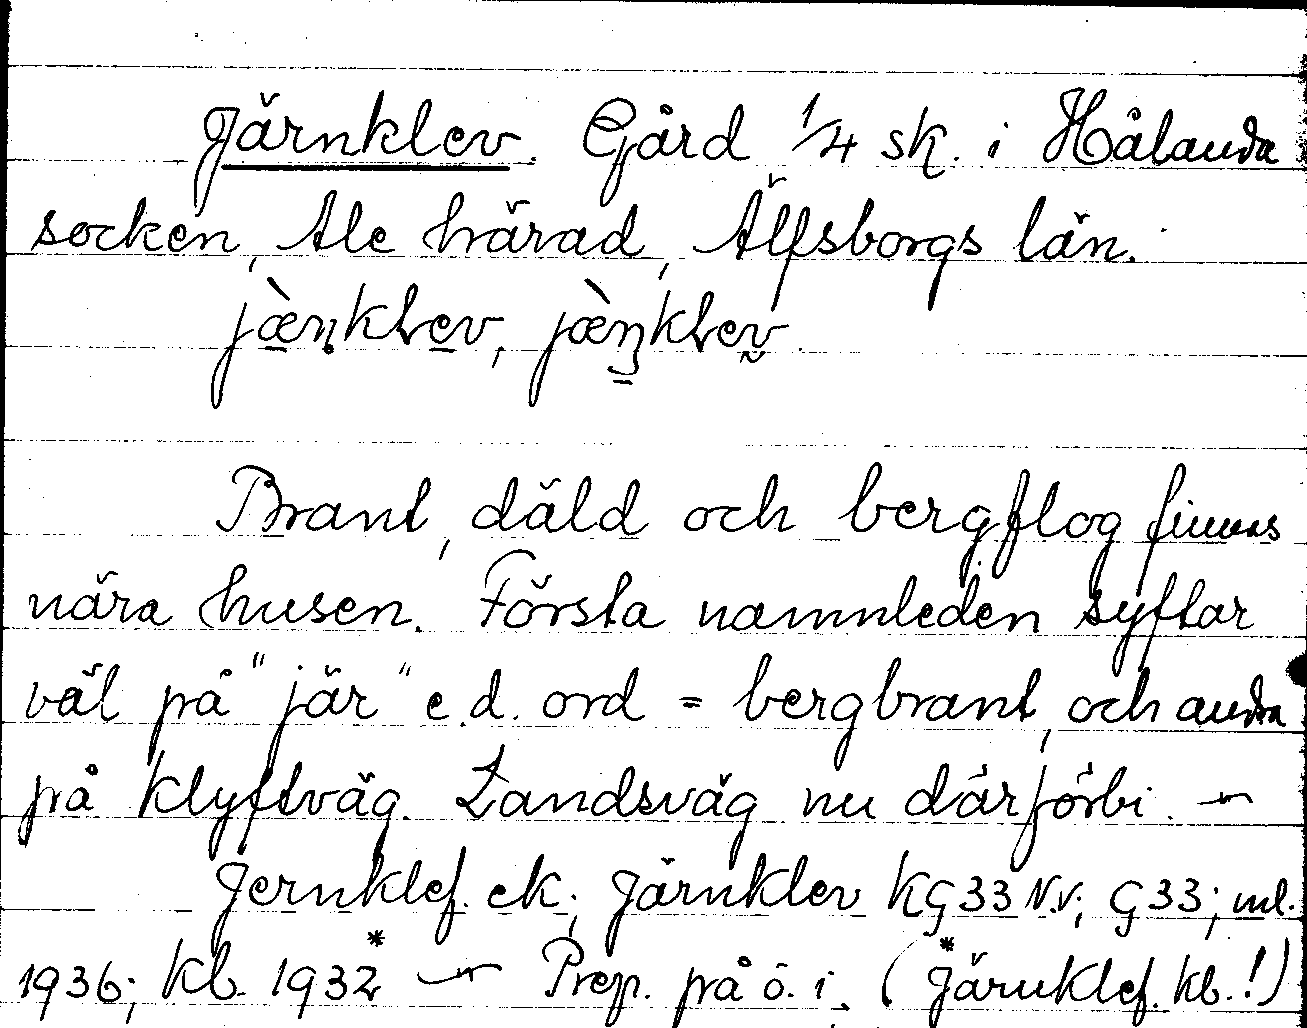 Järnklev. Gård 1/4 sk. i Hålanda
socken, Ale härad, Älfsborgs län.
jæ̀ṇklev, jæ̀ṇklev.
Brant, däld och bergflog finnas
nära husen. Första namnleden syftar
väl på "jär" e.d. ord = bergbrant, och andra
på klyftväg. Landsväg nu därförbi. ~
Jernklef. ek; Järnklev KG33 N.V; G33; ml.
1936; kb. 1932* ~ Prep. på ö. i. (*Järnklef. kb.!)